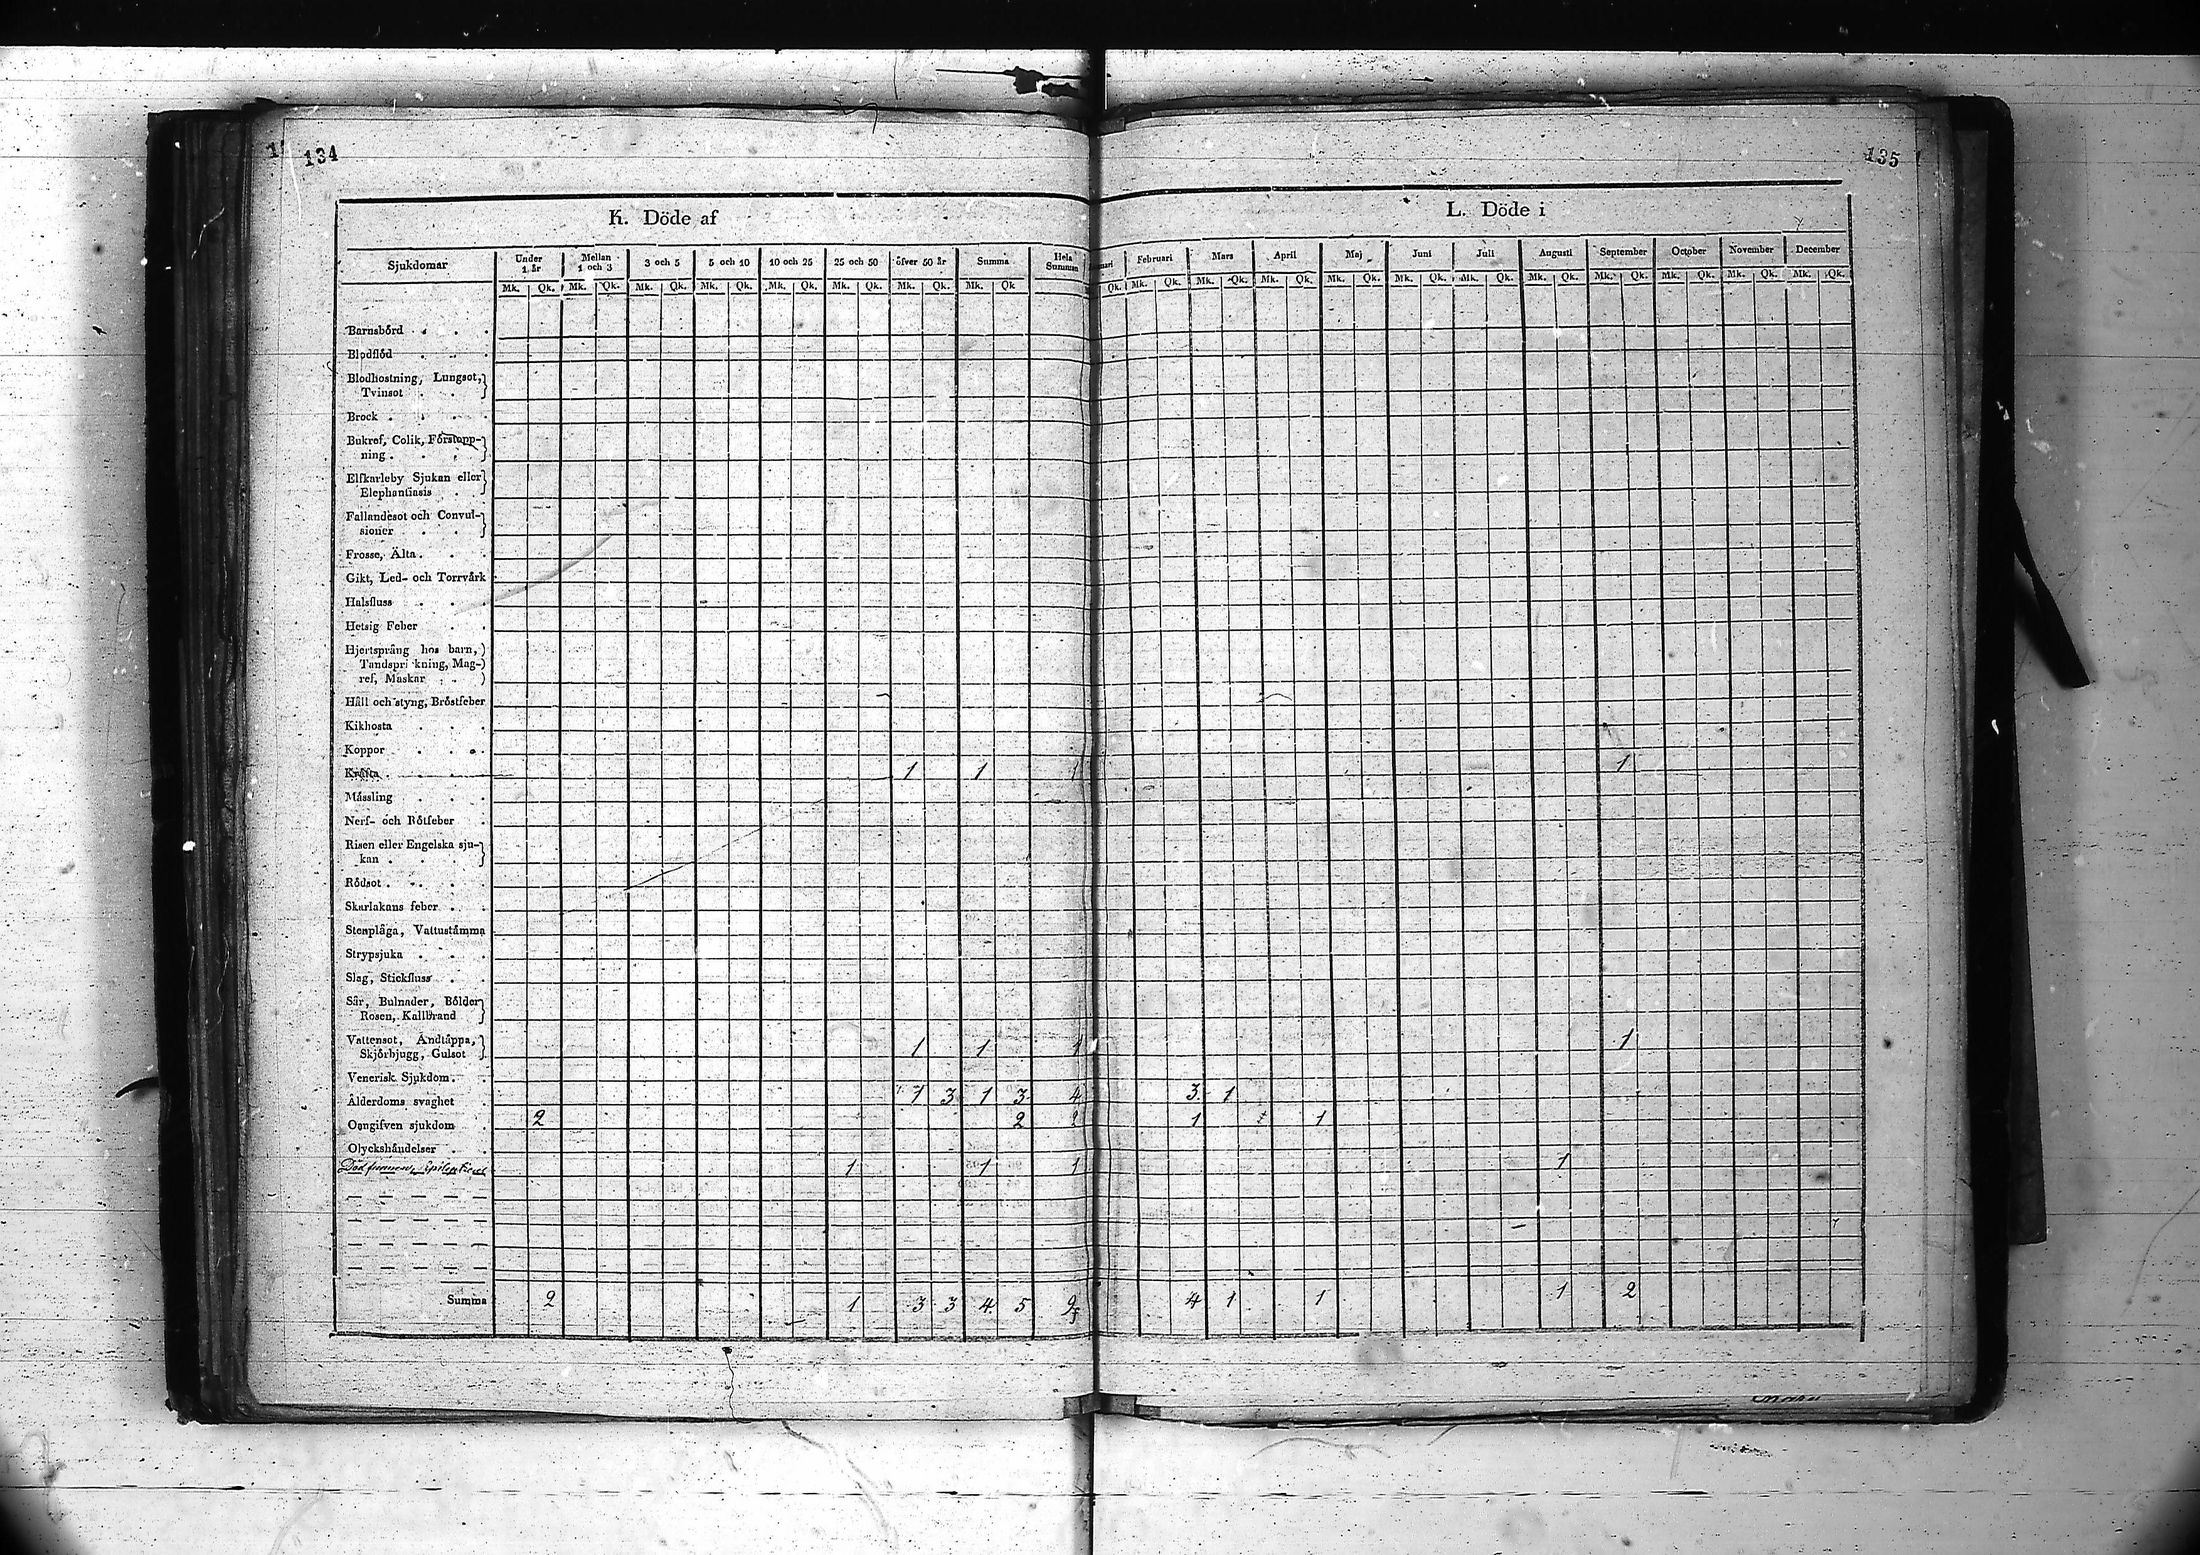 134
135
K. Döde af
L. Döde i
Sjukdomar
Under 1 år
Mellan 1 och 3
3 och 5
5 och 10
10 och 25
25 och 50
öfver 50 år
Summa
Hela Summan
Februari
Mars
April
Maj
Juni
Juli
Augusti
September
October
November
December
Mk. Qk. Mk. Qk. Mk. Qk. Mk. Qk. Mk. Qk. Mk. Qk. Mk. Qk. Mk. Qk
Qk. Mk. Qk. Mk. Qk. Mk. Qk. Mk. Qk. Mk. Qk. Mk. Qk. Mk. Qk. Mk. Qk. Mk. Qk. Mk. Qk. Mk. Qk.
Barnsbörd
Blodflöd
Blodhostning, Lungsot,
Tvinsot
Brock
Bukref, Colik, Förstopp-
ning
Elfkarleby Sjukan eller
Elephantiasis
Fallandesot och Convul-
sioner
Frosse, Älta
Gikt, Led- och Torrvärk
Halsfluss
Hetsig Feber
Hjertsprång hos barn,
Tandsprickning, Mag-
ref, Maskar
Håll och styng, Bröstfeber
Kikhosta
Koppor
Kräfta 1 1 1 1
Mässling
Nerf- och Rötfeber
Risen eller Engelska sju-
kan
Rödsot
Skarlakans feber
Stenplåga, Vattustämma
Strypsjuka
Slag, Stickfluss
Sår, Bulnader, Bölder
Rosen, Kallbrand
Vattensot, Andtäppa,
Skjörbjugg, Gulsot 1 1 1 1
Venerisk Sjukdom
Ålderdoms svaghet 1 3 1 3 4 3 1
Oangifven sjukdom 2 2 2 1 1
Olyckshändelser
Död funnen, 1 1 1 1
Summa 2 1 3 3 4 5 9 4 1 1 1 2